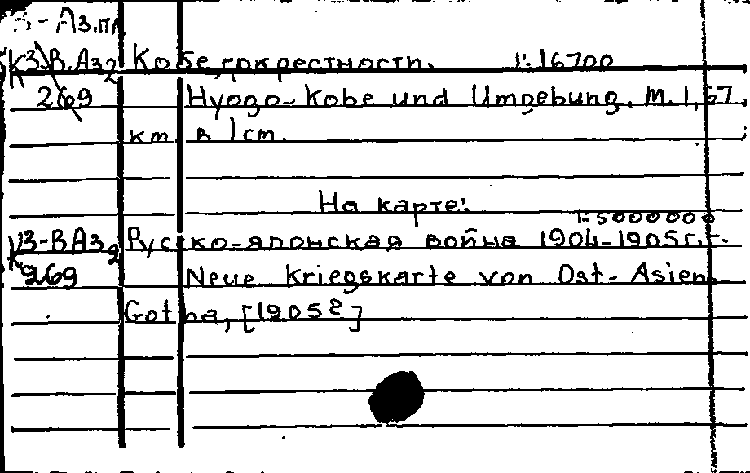 В-Аз.пл
К3-В.Аз2 Кобе, окрестности. 1:16700
269 Hyogo-Kobe und Umgebung. М. 1,67
km в 1cm.
На карте:
1:5000000
К3-В Аз2 Русско-японская война 1904-1905г.г.
269 Neue Kriegskarte von Ost-Asien.
Gotha, [1905?]